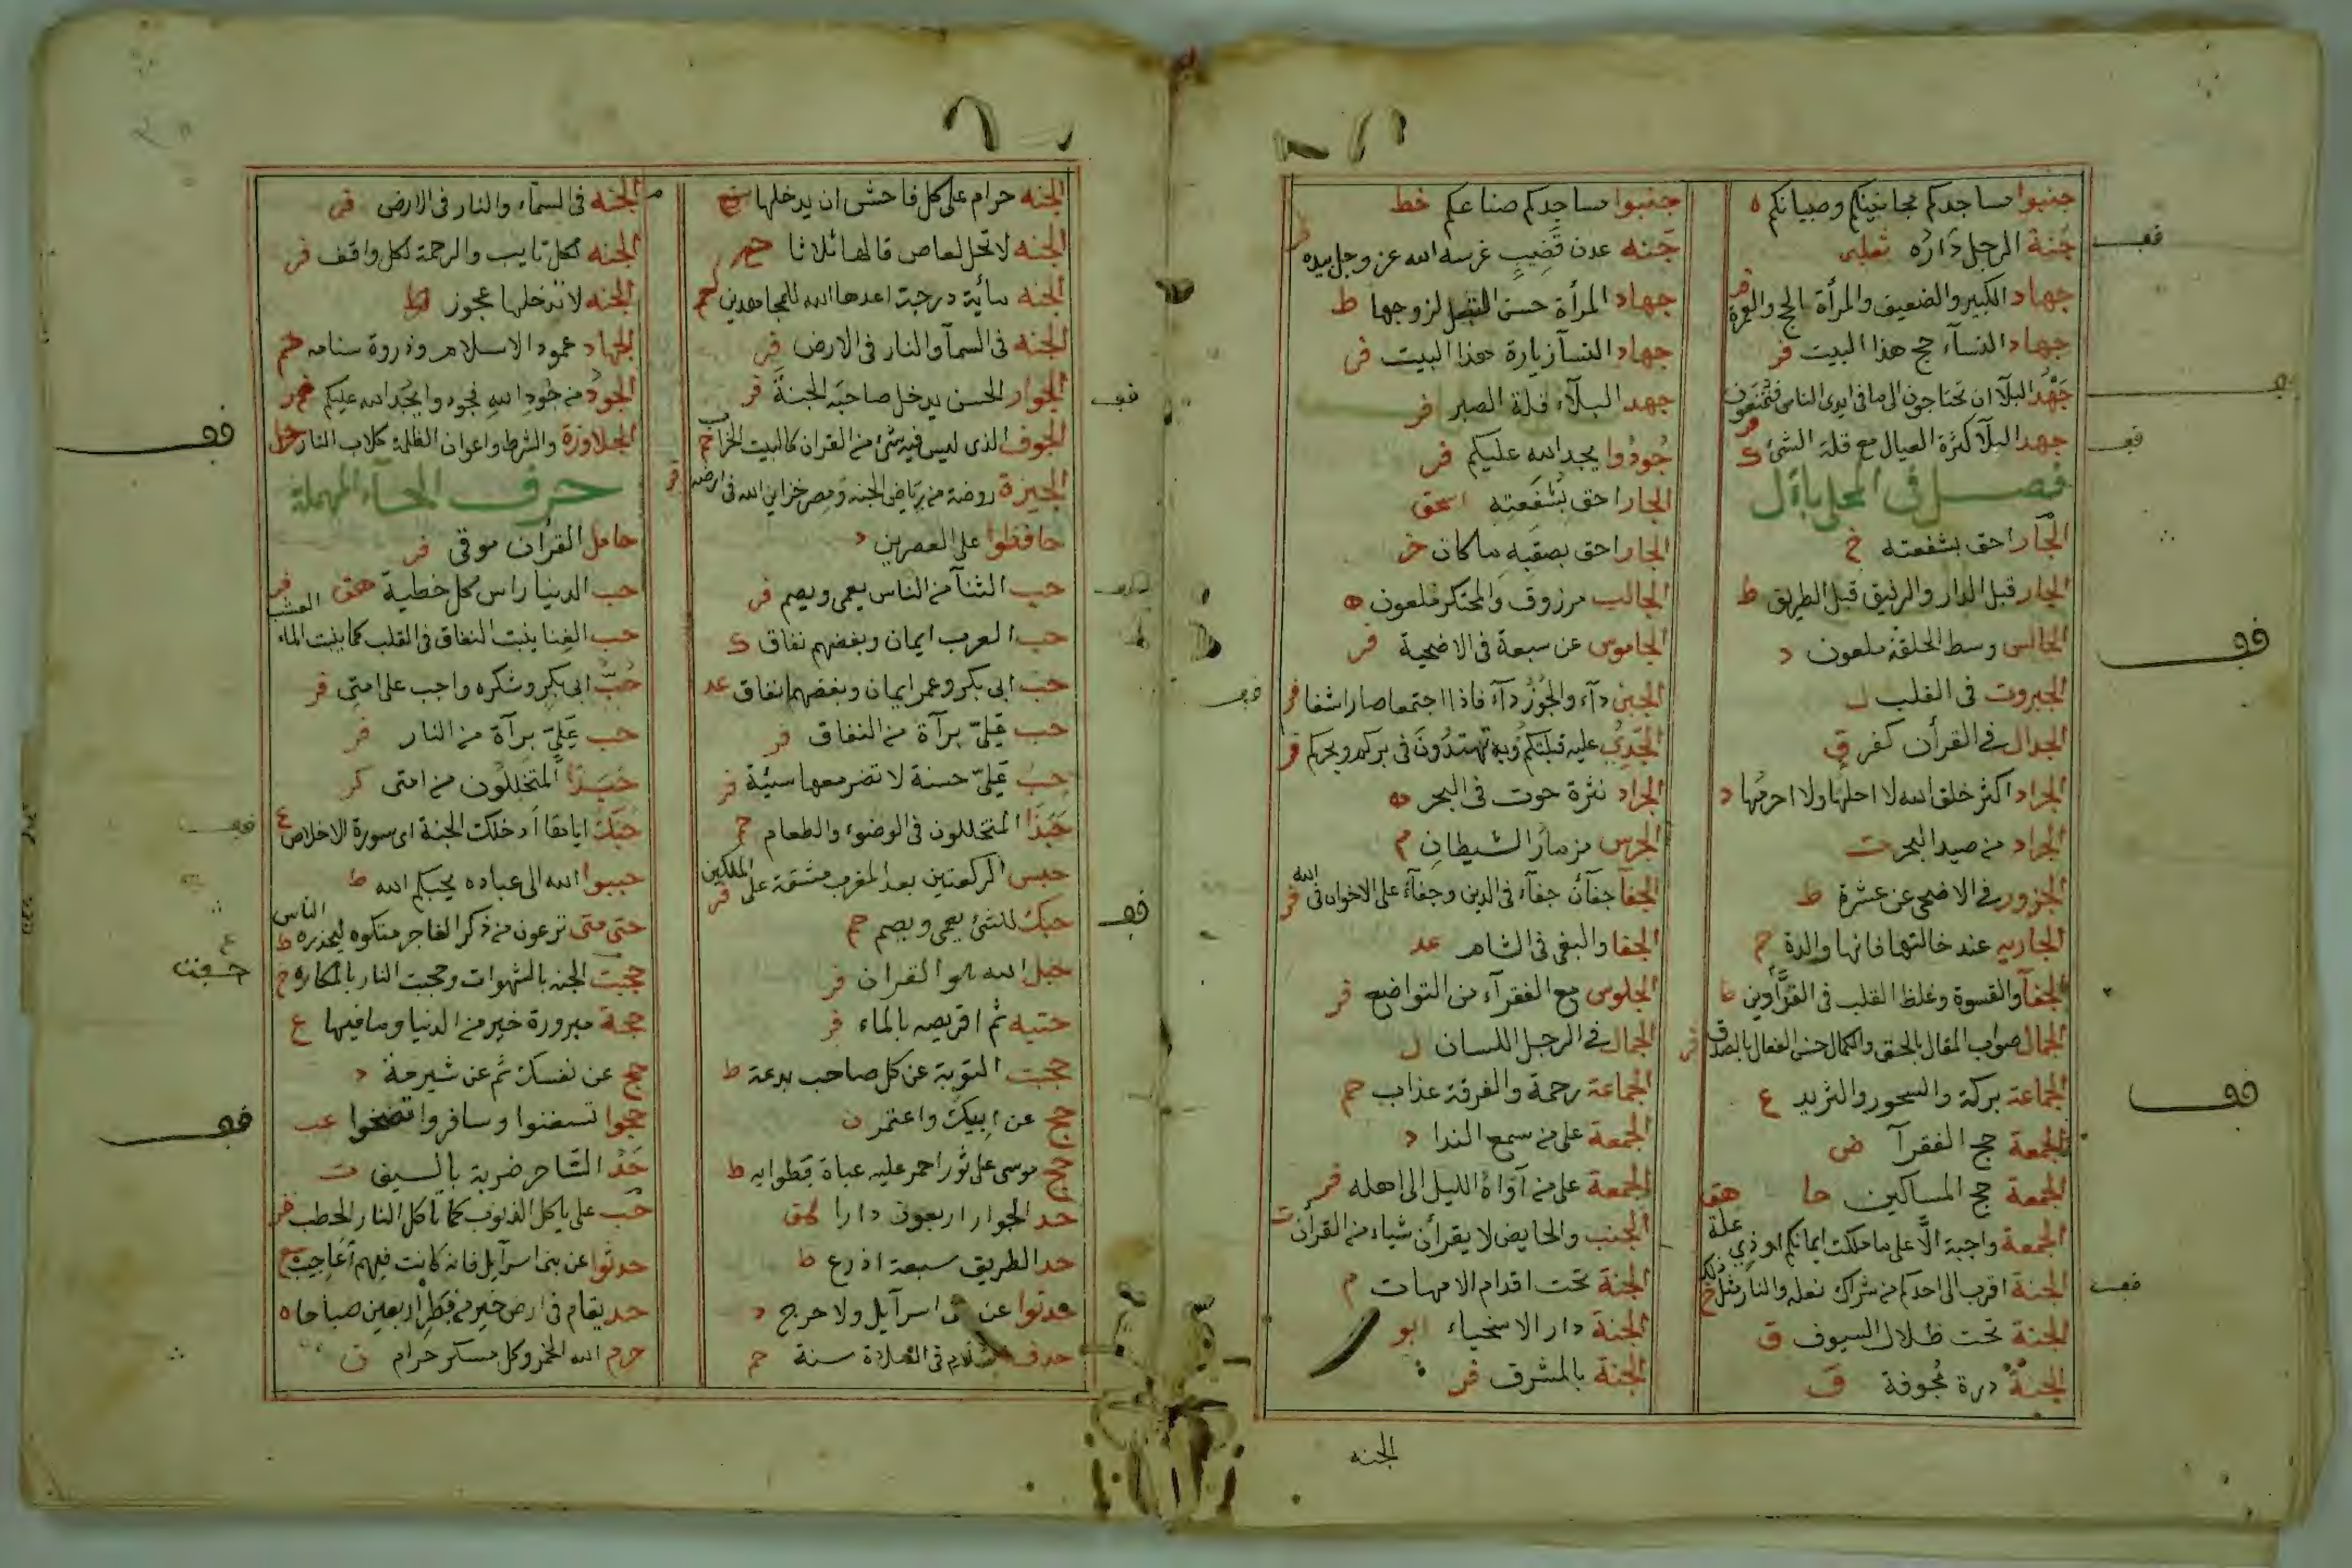 جنبوا مساجدكم مجانينكم وصبيانكم ه
جنة الرجل داره ثعلبى
جهاد الكبير والضعيف والمرأة الحج والعمرة
جهاد النسآء حج هذا البيت فر
جهد البلآ ان تحتاجون الى ما فى ايدى الناس فتمنعون فر
جهد البلآ كثرة العيال مع قلة الشئ ك
فصل فى المحلى بال
الجار احق بشفعته خ
الجار قبل الدار والرفيق قبل الطريق ط
الجالس وسط الحلقة ملعون د
الجبروت فى القلب ل
الجدال فى القرأن كفر ق
الجراد اكثر خلق الله لا احلها ولا احرمها د
الجراد من صيد البحر ت
الجزور فى الاضحى عن عشرة ط
الجاريه عند خالتها فانها والدة حم
الجفآ والقسوة وغلظ القلب فى الفدّادين
الجمال صواب المقال بالحق والكمال حسن الفعال بالصدق
الجماعة بركة والسحور والثريد ع
الجمعة حج الفقرآ ض
الجمعة حج المساكين حا
الجمعة واجبة الّا على ما ملكت ايمانكم او ذى علة هق
الجنة اقرب الى احدكم من شراك نعله والنار مثل ذلك خ
الجنة تحت ظلال السيوف ق
الجنة درة مجوفة ق
جنبوا مساجدكم صناعكم خط
جنه عدن قضيب غرسه الله عز وجل بيده
جهاد المرأة حسن التبعل لزوجها ط
جهاد النسآ زيارة هذا البيت فر
جهد البلآء قلة الصبر فر
جُودُوا يجد الله عليكم فر
الجار احق بشفعته اسحق
الجار احق بصقبه ما كان خ
الجالب مرزوق والمحتكر ملعون ه
الجاموس عن سبعة فى الاضحية فر
الجبن دآء والجوز دآء فاذا اجتمعا صارا شفا فر
الجدى عليه قبلتكم وبه تهتدون فى بركم وبحركم فر
الجراد نثرة حوت فى البحر ه
الجرس مزمار الشيطان م
الجفآ جفآن جفآء فى الدين وجفآء على الاخوان فى الله فر
الجفا والبغى فى الشام عد
الجلوس مع الفقرآء من التواضع فر
الجمال فى الرجل اللسان ل
الجماعة رحمة والفرقة عذاب حم
الجمعة على من سمع الندا د
الجمعة على من آواه الليل الى اهله فر
الجنب والحايض لا يقرأن شياء من القرأن ت
الجنة تحت اقدام الامهات م
الجنة دار الاسخياء ابو
الجنة بالمشرق فر
الجنه
الجنه حرام على كل فاحش ان يدخلها
الجنه لا تحل لعاص قالها ثلاثا حم
الجنه مأية درجة اعدها الله للمجاهدين حم
الجنه فى السمآ والنار فى الارض فر
الجوار الحسن يدخل صاحبه الجنة فر
الجوف الذى ليس فيه شئ من القران كالبيت الخراب حم
الجيزة روضة من رياض الجنه ومصر خزاين الله فى ارضه فر
حافظوا على العصرين د
حب الثنآ من الناس يعمى ويصم فر
حب العرب ايمان وبغضهم نفاق ك
حب ابى بكر وعمر ايمان وبغضهما نفاق عد
حب علىّ برآة من النفاق فر
حب علىّ حسنة لا تضر معها سيئة فر
حبذا المتخللون فى الوضوء والطعام حم
حبس الركعتين بعد المغرب مشقة على الملكين فر
حبك للشئ يعمى ويصم حم
حبل الله هو القران فر
حتيه ثم اقرصيه بالماء فر
حجبت التوبة عن كل صاحب بدعة ط
حج عن ابيك واعتمر ن
حج موسى على ثور احمر عليه عباة قطوانيه ط
حد الجوار اربعون دارا هق
حد الطريق سبعة اذرع ط
حدثوا عن بنى اسرآيل ولا حرج د
حذف السلام فى الصلاة سنة حم
الجنه فى السمآء والنار فى الارض فر
الجنه لكل تايب والرحمة لكل واقف فر
الجنه لا تدخلها عجوز ط
الجهاد عمود الاسلام وذروة سنامه حم
الجود من جود الله فجودوا يجد الله عليكم
الجلاوزة والشرط واعوان الظلمة كلاب النار حل
حرف الحآء المهملة
حامل القرأن موقى فر
حب الدنيا راس كل خطية هق
حب الغنا ينبت النفاق فى القلب كما ينبت الماء العشب فر
حُبّ ابى بكر وشكره واجب على امتى فر
حب علىّ برآة من النار فر
حبذا المتخللون من امتى كر
حبك اياها ادخلك الجنة اى سورة الاخلاص ع
حببوا الله الى عباده يحبكم الله ط
حتى متى ترعون من ذكر الفاجر هتكوه ليحذره الناس ط
حجبت الجنه بالشهوات وحجبت النار بالمكاره خ
حفت
حجة مبرورة خير من الدنيا وما فيها ع
حج عن نفسك ثم عن شبرمة د
حجوا تستغنوا وسافروا تصحوا عب
حد الساحر ضربة بالسيف ت
حب على ياكل الذنوب كما تأكل النار الحطب فر
حدثوا عن بنى اسرآيل فانه كانت فيهم اعاجيب
حد يقام فى ارض خير من قطر اربعين صباحا ه
حرم الله الخمر وكل مسكر حرام ن